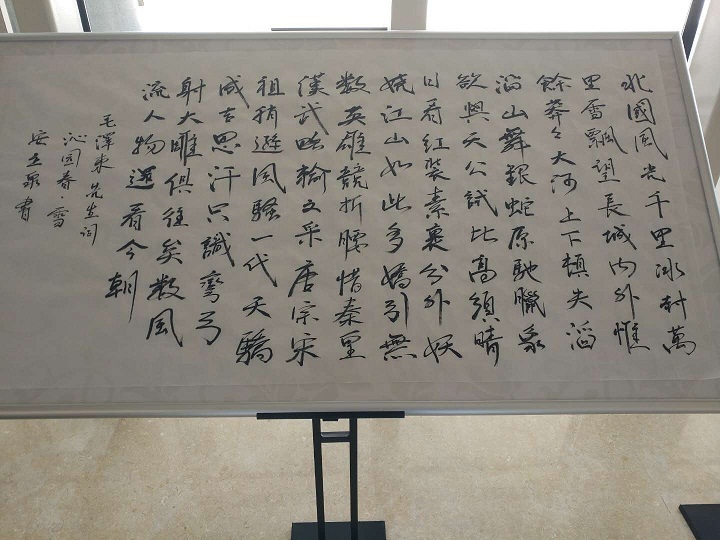 北國風光千里冰封萬
里雪飄望長城内外惟
餘莽々大河上下頓失滔
滔山舞銀蛇原馳臘象
欲與天公試比高須晴
日看紅裝素裹分外妖
嬈江山如此多嬌引無
数英雄競折腰惜秦皇
漢武略輸文采唐宗宋
祖稍遜風騷一代天驕
成吉思汗只識彎弓
射大雕俱往矣数風
流人物還看今朝
毛澤東先生詞
沁园春·雪
安立泉書